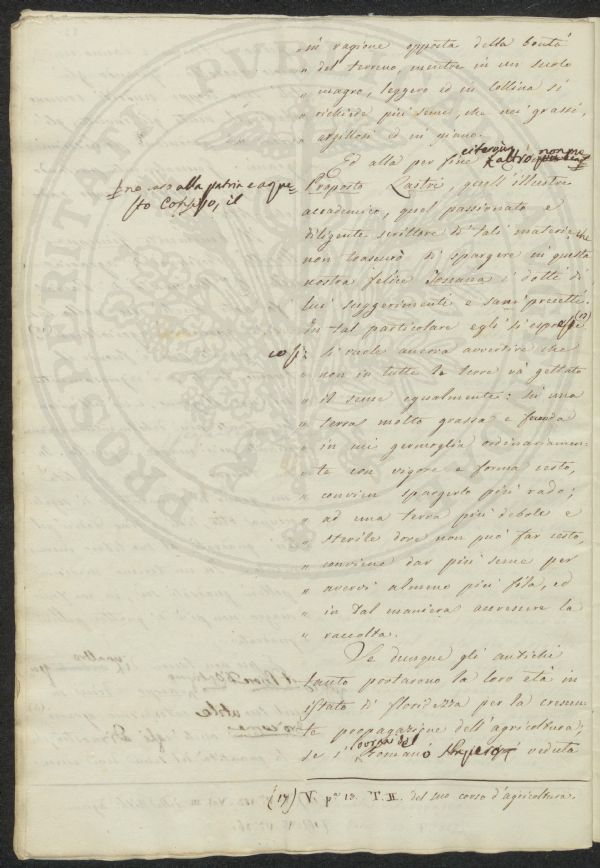 in ragione opposta della bontà
" del terreno, mentre in un suolo
" magro, leggero ed in collina si
" richiede più seme, che nei grassi,
" argillosi ed in piano.
Ed alla per fine altro non me
Proposto Lastri, quell'illustre
no caro alla patria e a que
sto Corpo, il
accademico, quel passionato e
diligente scrittore di tali materie, che
non trascurò di spargere in questa
nostra felice Toscana i dotti di
lui suggerimenti e sani precetti.
In tal particolare egli si espresse (17)
così:
" si vuole ancora avvertire che
" non in tutte le terre và gettato
" il seme egualmente: in una
" terra molto grassa e feconda
" in cui germoglia ordinariamen-
" te con vigore e forma cesto,
" conviene spargerlo più rado;
" ad una terra più debole e
" sterile dove non può far cesto,
" conviene dar più seme per
" avervi almeno più fila, ed
" in tal maniera accrescere la
" raccolta.
Se dunque gli antichi
tanto portarono la loro età in
istato di floridezza per la crescen-
te propagazione dell'agricoltura;
se i Romani veduta
(17) V. pa. 13. T. II. del suo corso d'agricoltura.
PROSPERITATI PVBLICAE